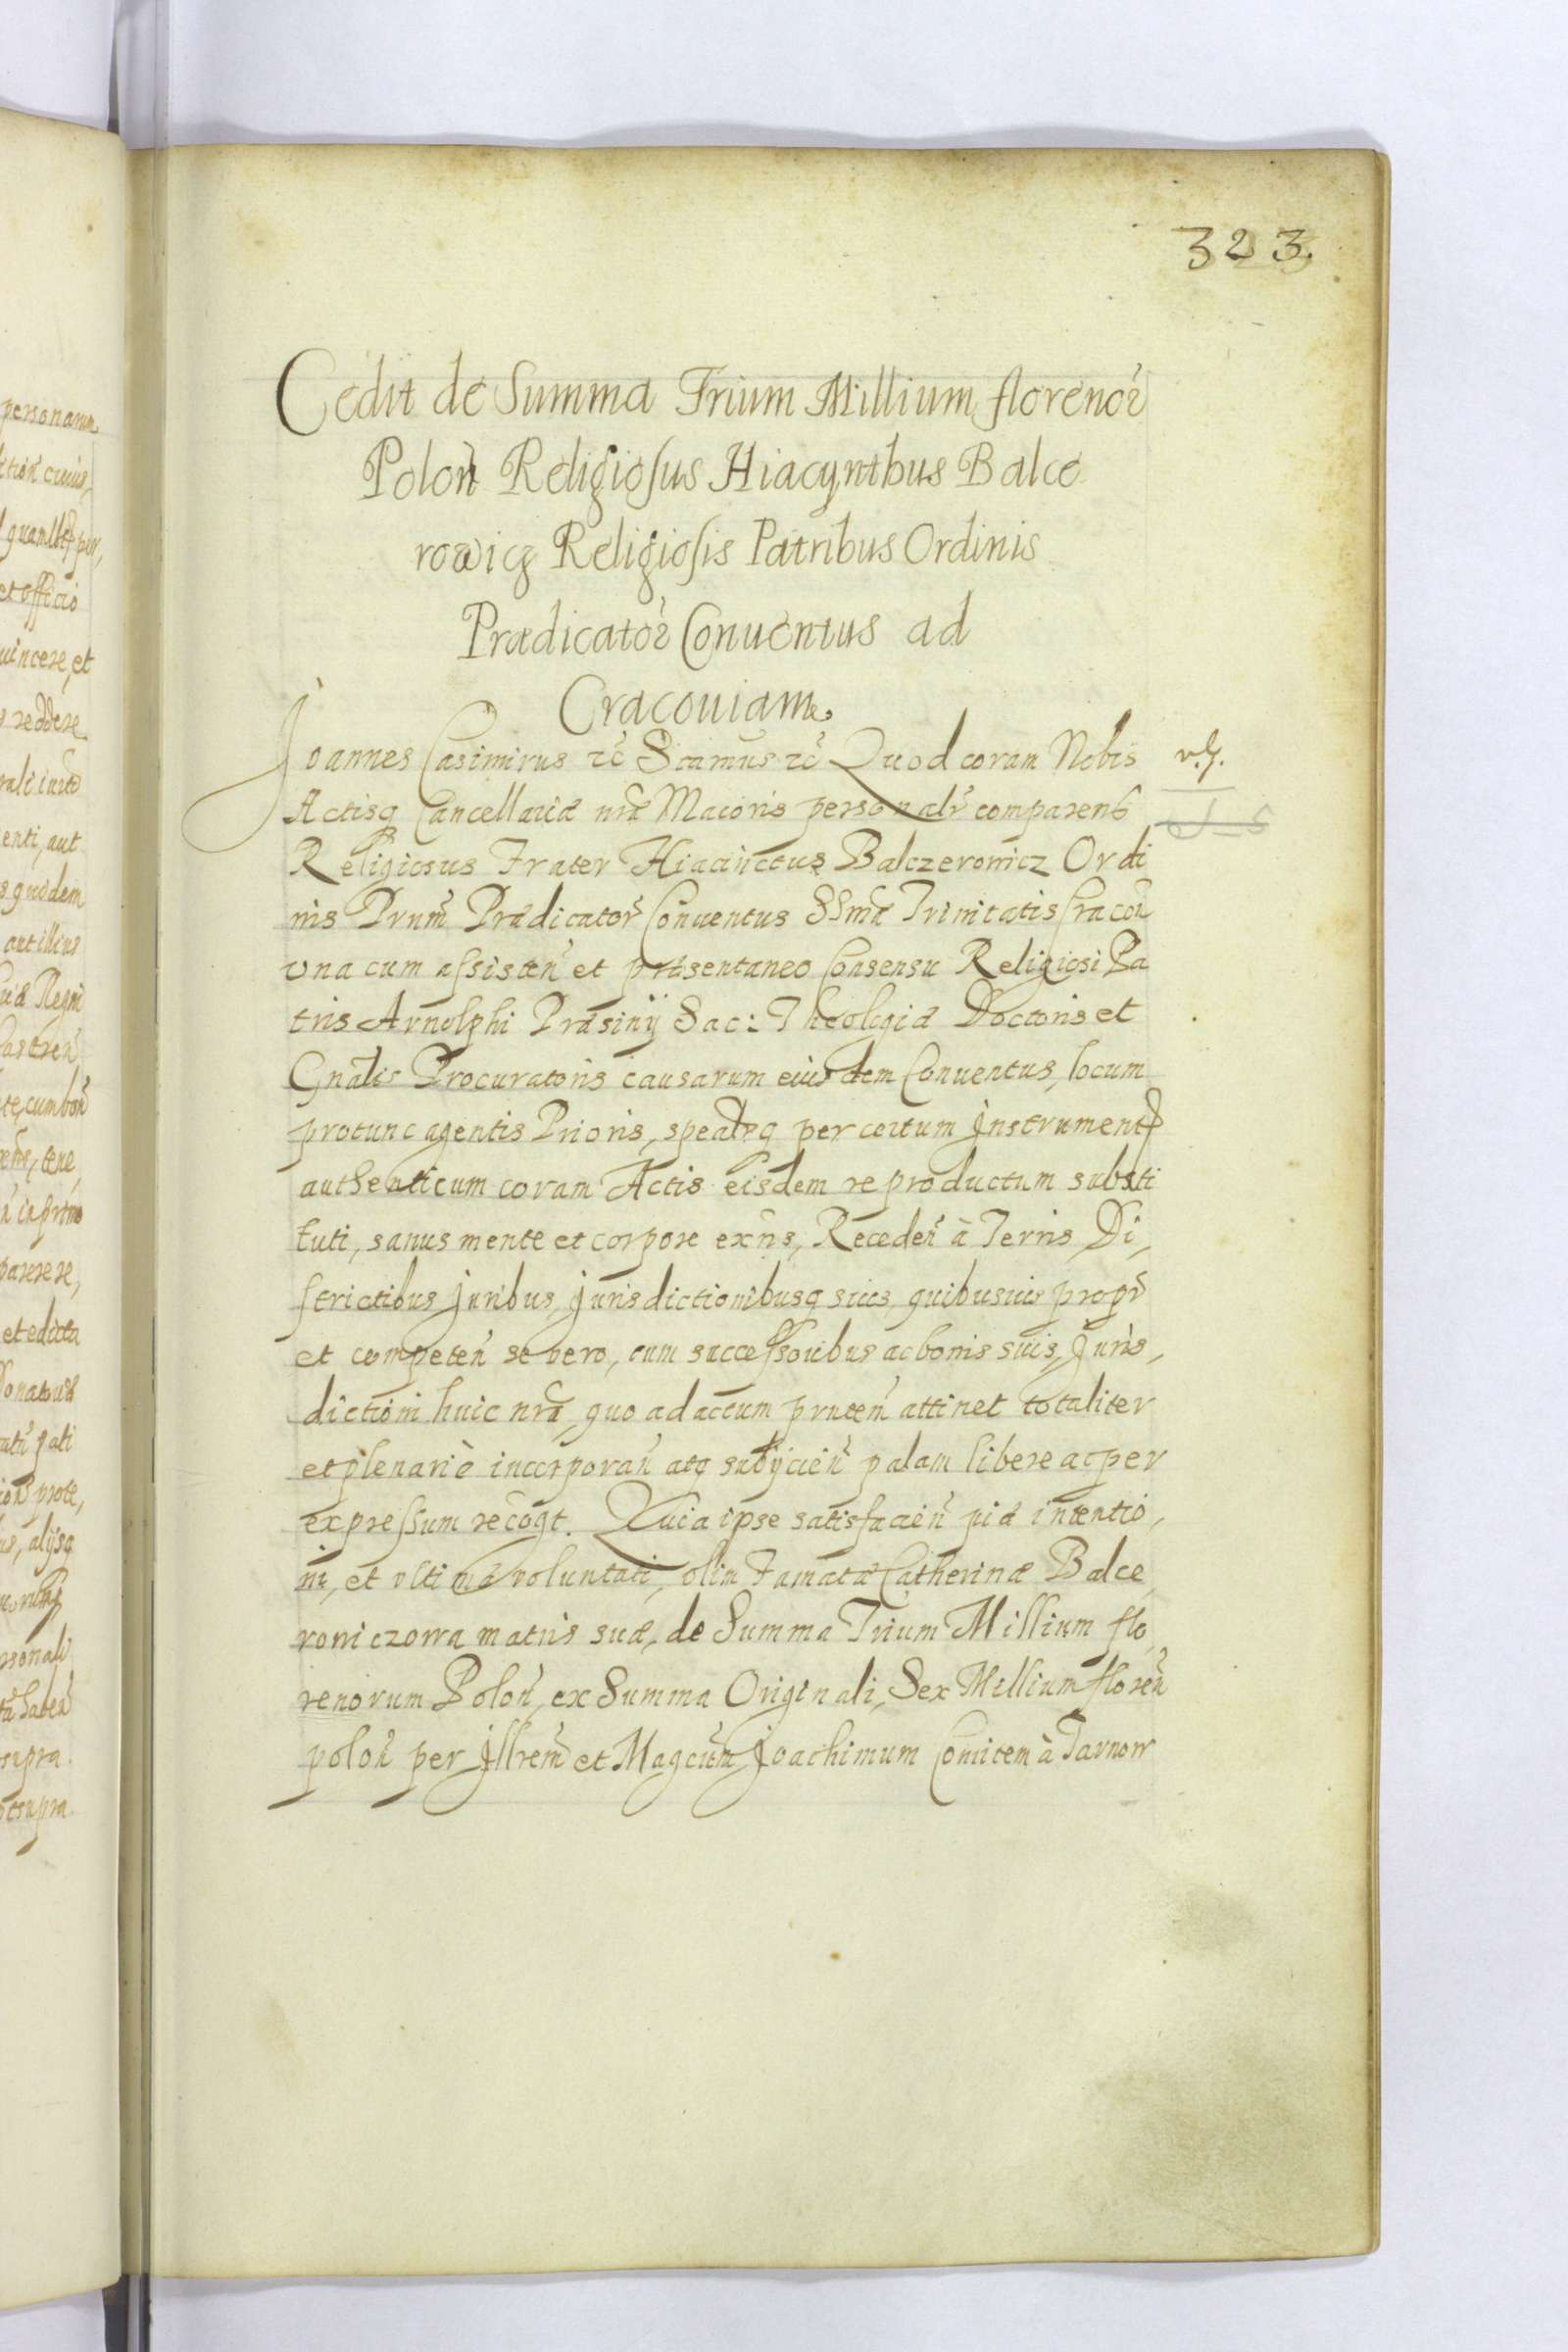 323.
Cedit de Summa Trium Millium florenor̃
Poloñ Religiosus Hiacynthus Balce
rowicz Religiosis Patribus Ordinis
Prædicator̃ Conuentus ad
Cracouiam.
Joannes Casimirus &c̃ Scamus &c̃ Quod coram Nobis
v. g.
Actisq Cancellariæ nr̃æ Maioris personalr̃ comparens
Religiosus Frater Hiacinctus Balczerowicz Ordi
nis Prum̃ Prædicator̃ Conuentus SSmæ Trinitatis Cracou̅
vna cum assisteñ et præsentaneo Consensu Religiosi Pa
tris Arnolphi Præsinÿ Sac: Theologiæ Doctoris et
Gnãlis Procuratoris causarum eiusdem Conuentus, locum
protunc agentis Prioris, spealrq per certum Instrument
authenticum coram Actis eisdem reproductum substi
tuti, sanus mente et corpore exñs, Recedeñ à Terris Di,
strictibus Juribus, Jurisdictionibusq suis quibusuis propr̃
et competeñ se vero, cum successoribus ac bonis suis, Juris,
dictioni huic nr̃æ, quo ad actum pruteñ attinet totaliter
et plenariè incorporañ atq subÿcieñ palam libere ac per
expressum recogt. Quia ipse satisfacieñ piæ intentio,
ni, et vltimæ voluntati, olim Famatæ Catherinæ Balce,
rowiczowa matris suæ, de Summa Trium Millium flo,
renorum Poloñ, ex Summa Originali, Sex Millium floreñ
poloñ per Jllrem̃ et Magcum̃ Joachimum Comitem à Tarnow